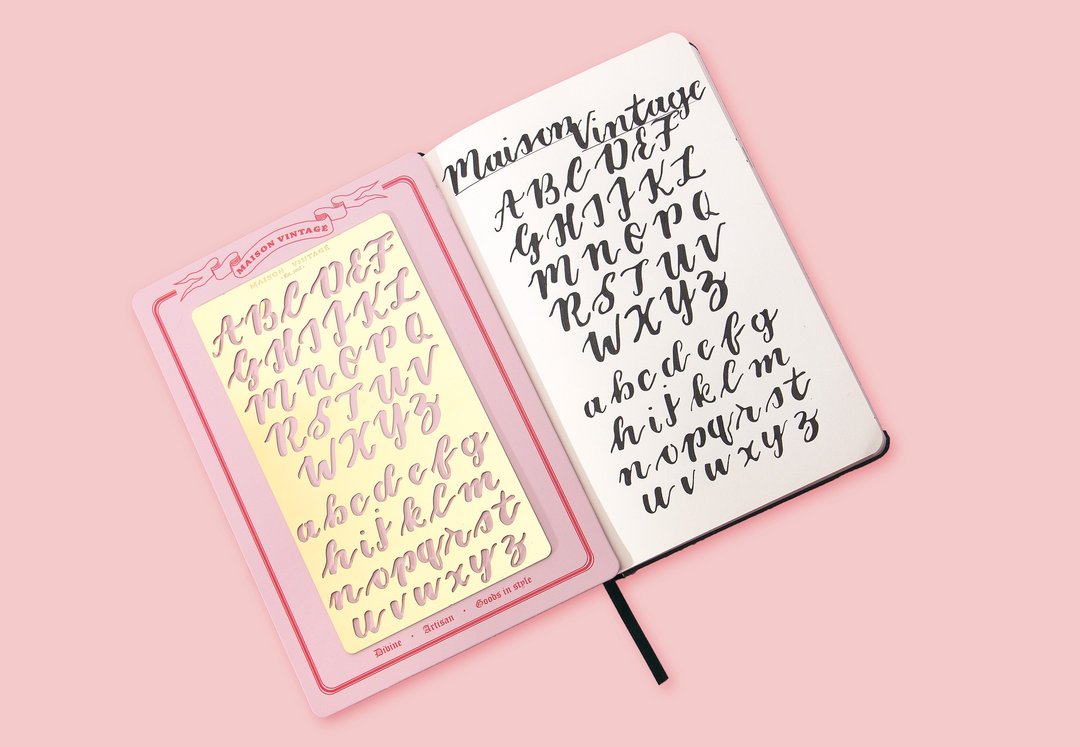 MAISON VINTAGE
MAISON VINTAGE
A B C D E F
G H I J K L
M N O P Q
R S T U V
W X Y Z
a b c d e f g
h i j k l m
n o p q r s t
u v w x y z
Divine · Artisan · Goods in style
Maison Vintage
A B C D E F
G H I J K L
M N O P Q
R S T U V
W X Y Z
a b c d e f g
h i j k l m
n o p q r s t
u v w x y z